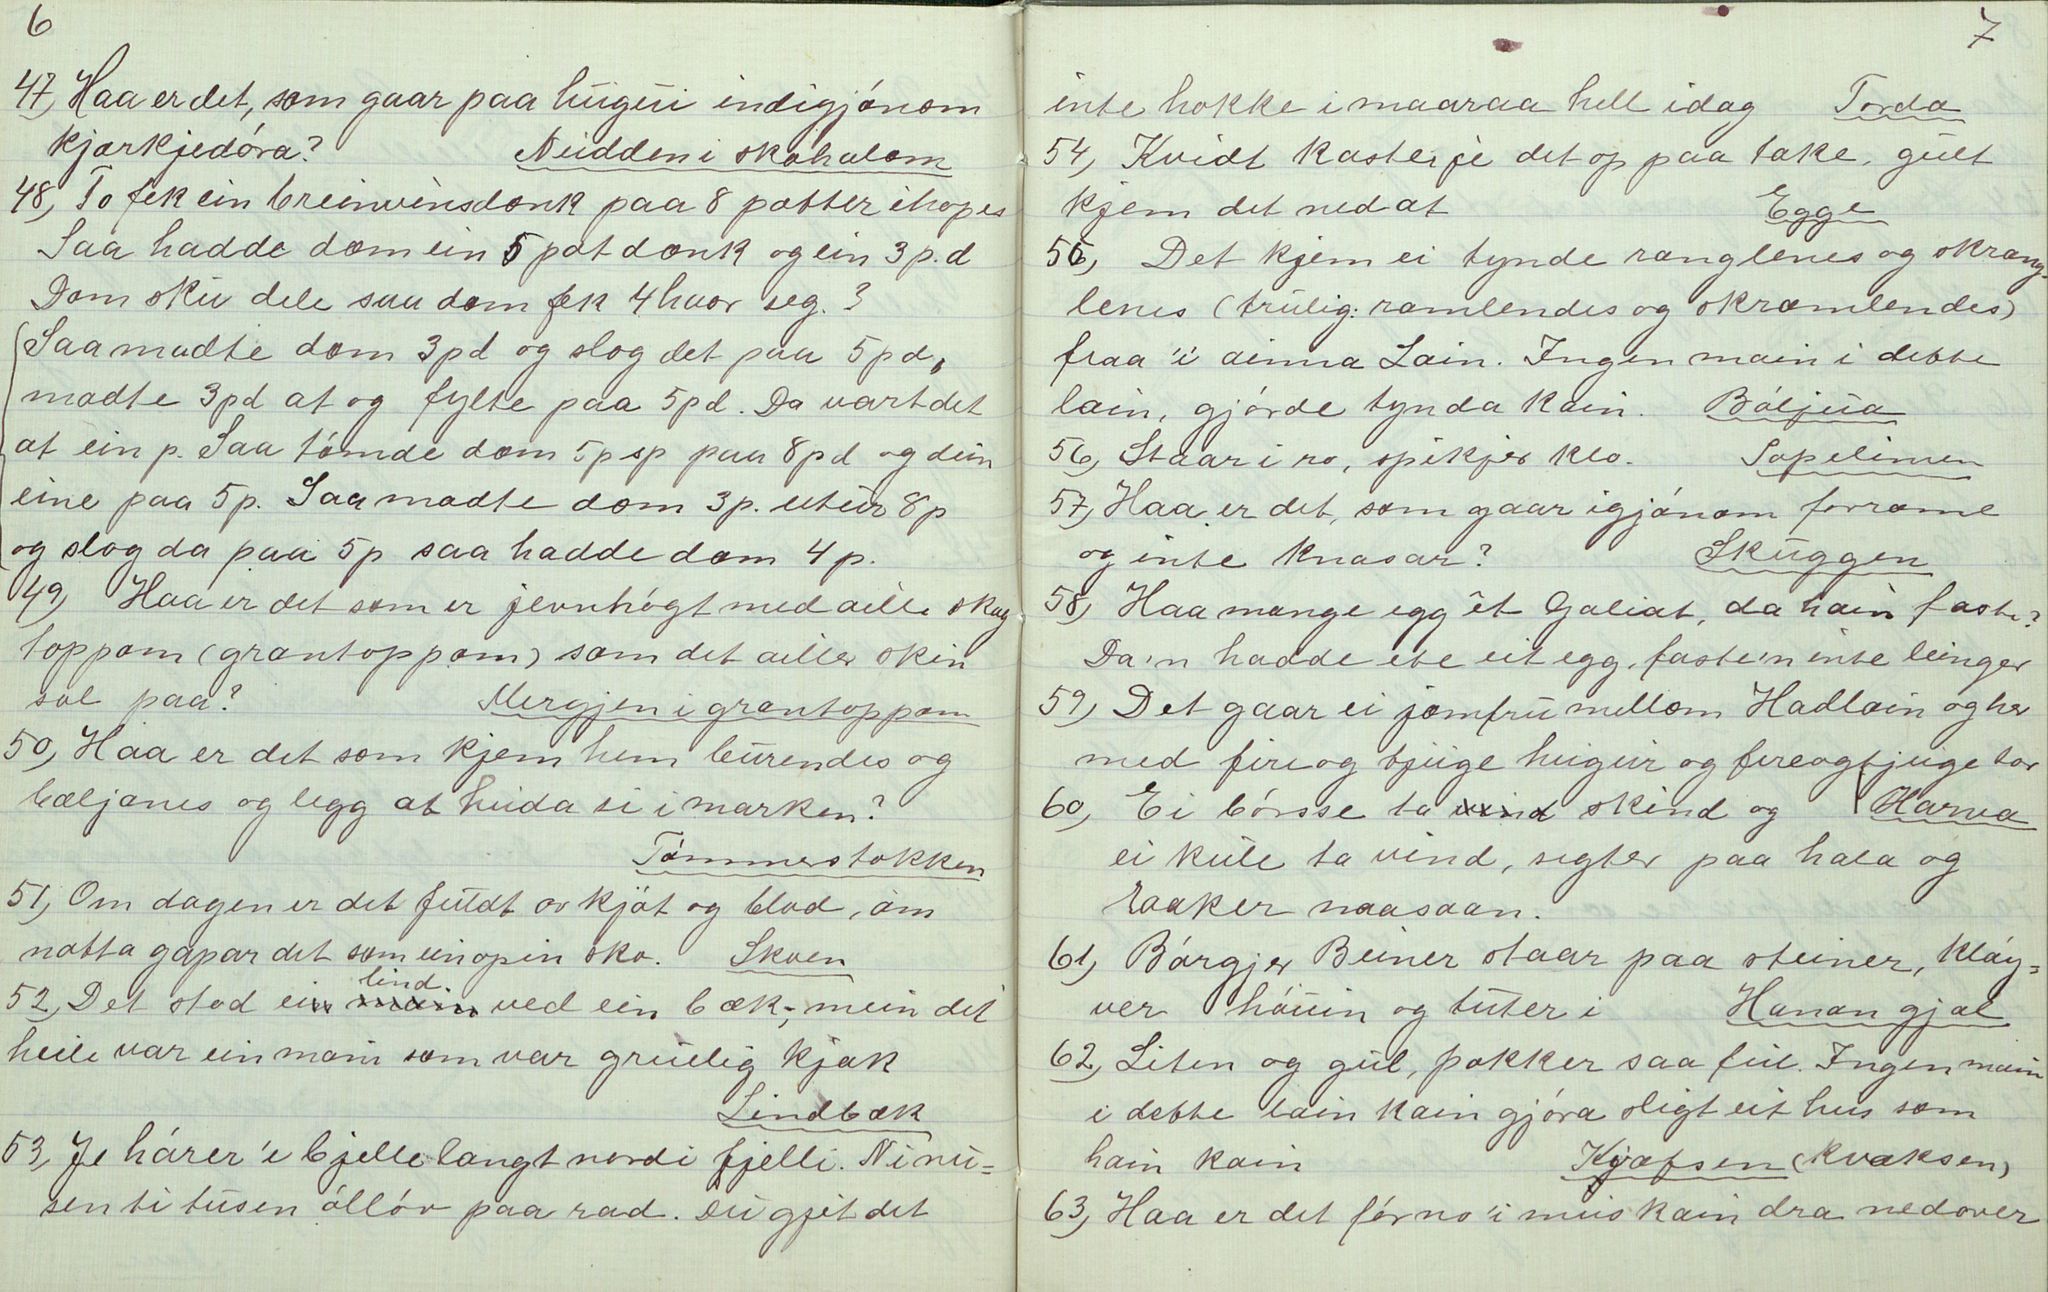 6
47, Haa er det, som gaar paa hūgūi indigjónom
kjørkjedóra? Nūdden i skohælom
48, To fek ein breinvinsdonk paa 8 potter ihopes
Saa hadde dom ein 5 pot donk og ein 3 p.d
Dom skū dele saa dom fek 4 hvor seg.?
Saa madte dom 3pd og slog det paa 5pd,
madte 3pd at og fylte paa 5pd. Da vart det
at ein p. Saa tómde dom 5p sp paa 8pd og dein
eine paa 5p. Saa madte dom 3p. utūr 8p
og slog da paa 5p saa hadde dom 4p.
49, Haa er det som er jevnhógt med aille skog
toppom (grantoppom) som det ailler skin
sol paa? Mergjen i grantoppom
50, Haa er det som kjem hem būrendes og
bæljanes og legg at hūda si i marken?
Tømmerstokken
51, Om dagen er det fūldt ov kjöt og blod, om
notta gapar det som ein open sko. Skoen
52, Det stod ei lind ved ein bæk; mein det
heile var ein main som var grūelig kjæk
Lindbæk
53, Je hórer 'e bjelle langt nord i fjelli. Ni nū=
sen ti tūsen óllóv paa rad. Dū gjet det
7
inte hokke i maaraa hell idag Torda
54, Kvidt kaster je det op paa take, gūlt
kjem det ned at Egge
55, Det kjem ei tynde ranglenes og skrang-
lenes (trūlig: ramlendes og skramlendes)
fraa 'i ainna Lain. Ingen main i dette
lain, gjórde tynda kain. Bóljūa
56, Staar i ro, spikjer klo. Sopelimen
57, Haa er det, som gaar igjónom forrome
og inte knasar? Skūggen
58, Haa mange egg êt Goliat, da hain faste?
Da'n hadde ete eit egg, faste'n inte leinger
59, Det gaar ei jomfrū mellom Hadlain og her
med fire og tjūge hūgūr og fireogtjūge tær
Harva
60, Ei bórsse ta skind og
ei kūle ta vind, sigter paa hæla og
raaker naasaan.
61, Bórgjer Beiner staar paa steiner, kláy=
ver hóuin og tūter i Hanan gjæl
62, Liten og gūl, pokker saa fūl. Ingen main
i dette lain kain gjóra sligt eit hus som
hain kain Kjæfsen (kvæksen)
63, Haa er det fór no 'i mūs kain dra nedover